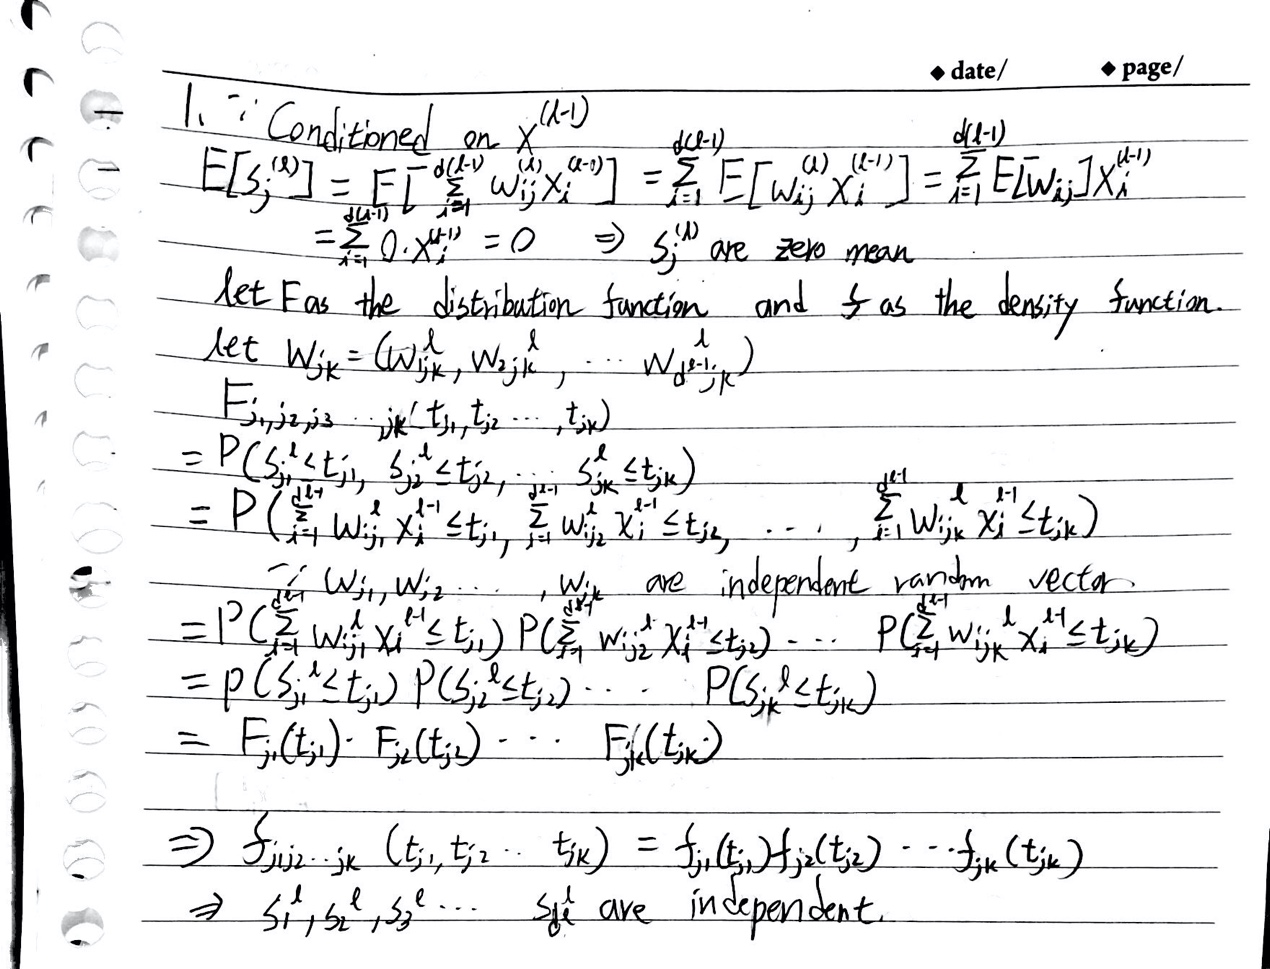 ◆ date/ ◆ page/
1. ∵ Conditioned on X^(l-1)
E[S_j^(l)] = E[ Σ_{i=1}^{d(l-1)} w_ij^(l) x_i^(l-1) ] = Σ_{i=1}^{d(l-1)} E[w_ij^(l) x_i^(l-1)] = Σ_{i=1}^{d(l-1)} E[w_ij] x_i^(l-1)
= Σ_{i=1}^{d(l-1)} 0·x_i^(l-1) = 0 ⇒ S_j^(l) are zero mean
let F as the distribution function and f as the density function.
let W_jk = (w_1jk^l, w_2jk^l, ... w_{d^{l-1}jk}^l)
F_{j1,j2,j3...,jk}(t_j1, t_j2 ..., t_jk)
= P(S_j1^l ≤ t_j1, S_j2^l ≤ t_j2, ... S_jk^l ≤ t_jk)
= P(Σ_{i=1}^{d^{l-1}} w_ij1^l x_i^{l-1} ≤ t_j1, Σ_{i=1}^{d^{l-1}} w_ij2^l x_i^{l-1} ≤ t_j2, ..., Σ_{i=1}^{d^{l-1}} w_ijk^l x_i^{l-1} ≤ t_jk)
∵ W_j1, W_j2 ..., W_jk are independent random vector.
= P(Σ_{i=1}^{d^{l-1}} w_ij1^l x_i^{l-1} ≤ t_j1) P(Σ_{i=1}^{d^{l-1}} w_ij2^l x_i^{l-1} ≤ t_j2) ... P(Σ_{i=1}^{d^{l-1}} w_ijk^l x_i^{l-1} ≤ t_jk)
= P(S_j1^l ≤ t_j1) P(S_j2^l ≤ t_j2) ... P(S_jk^l ≤ t_jk)
= F_j1(t_j1)· F_j2(t_j2) · ... F_jk(t_jk)
⇒ f_{j1j2...jk} (t_j1, t_j2 .. t_jk) = f_j1(t_j1) f_j2(t_j2) ... f_jk(t_jk)
⇒ S_1^l, S_2^l, S_3^l ... S_{d^l}^l are independent.